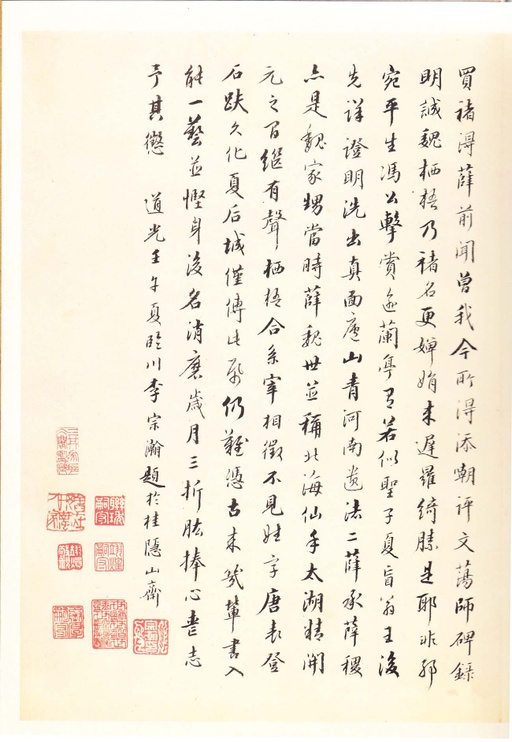 買褚得薛前聞曾我今所得添嘲評文蕩師碑錄
明誠魏栖梧乃褚名更嬋娟來遲羅綺勝是耶非邪
宛平生馮公擊賞逾蘭亭有若似聖子夏盲翁王後
先詳證明洗出真面廬山青河南遺法二薛承薛稷
亦是魏家甥當時薛魏世並稱北海仙手太湖精開
元之間繼有聲栖梧合系宰相徵不見姓字唐表登
石趺久化夏后城僅傳此本仍難憑古來幾輩書入
能一藝並慳身後名消磨歲月三折肱捧心喪志
予其懲 道光壬午夏臨川李宗瀚題於桂隱山齋